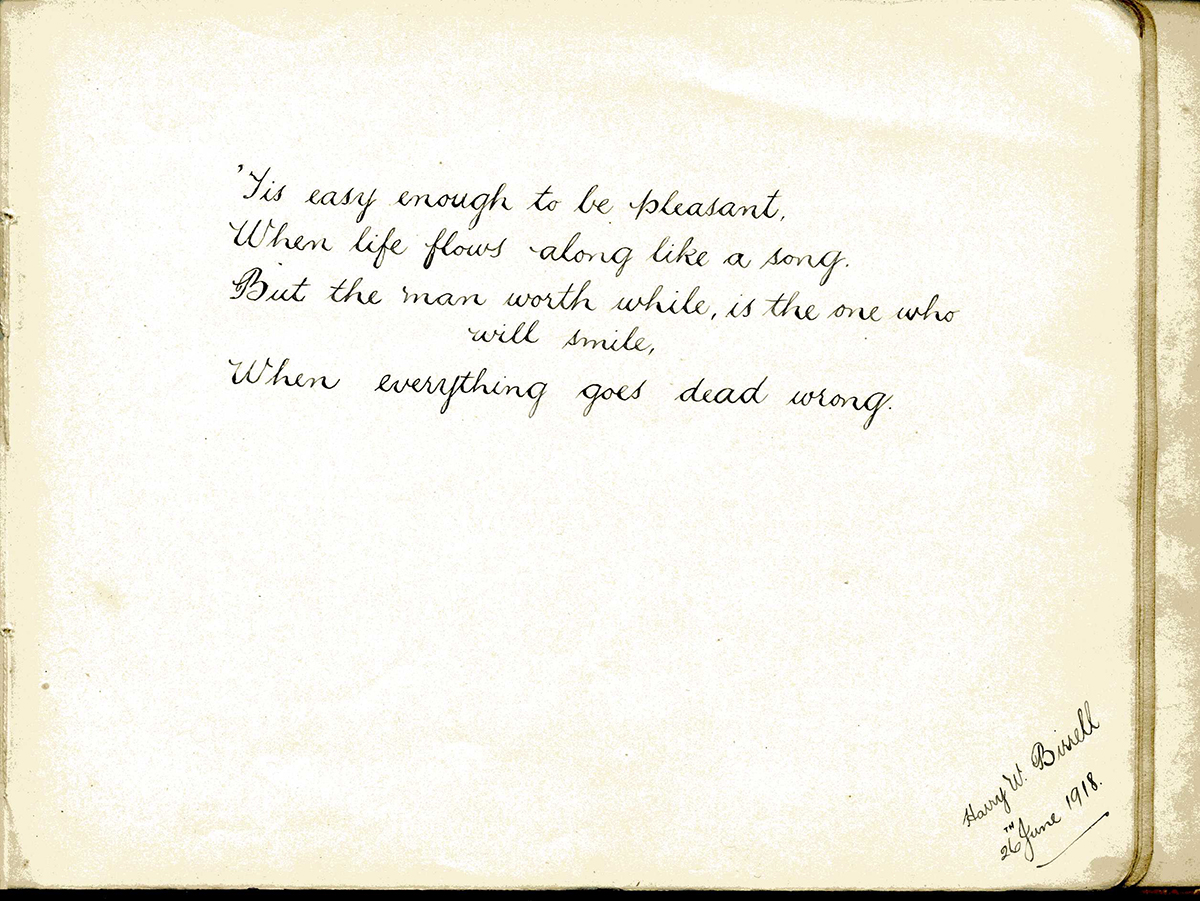 'Tis easy enough to be pleasant,
When life flows along like a song.
But the man worth while, is the one who
will smile,
When everything goes dead wrong.
Harry W. Bissell
26TH June 1918.